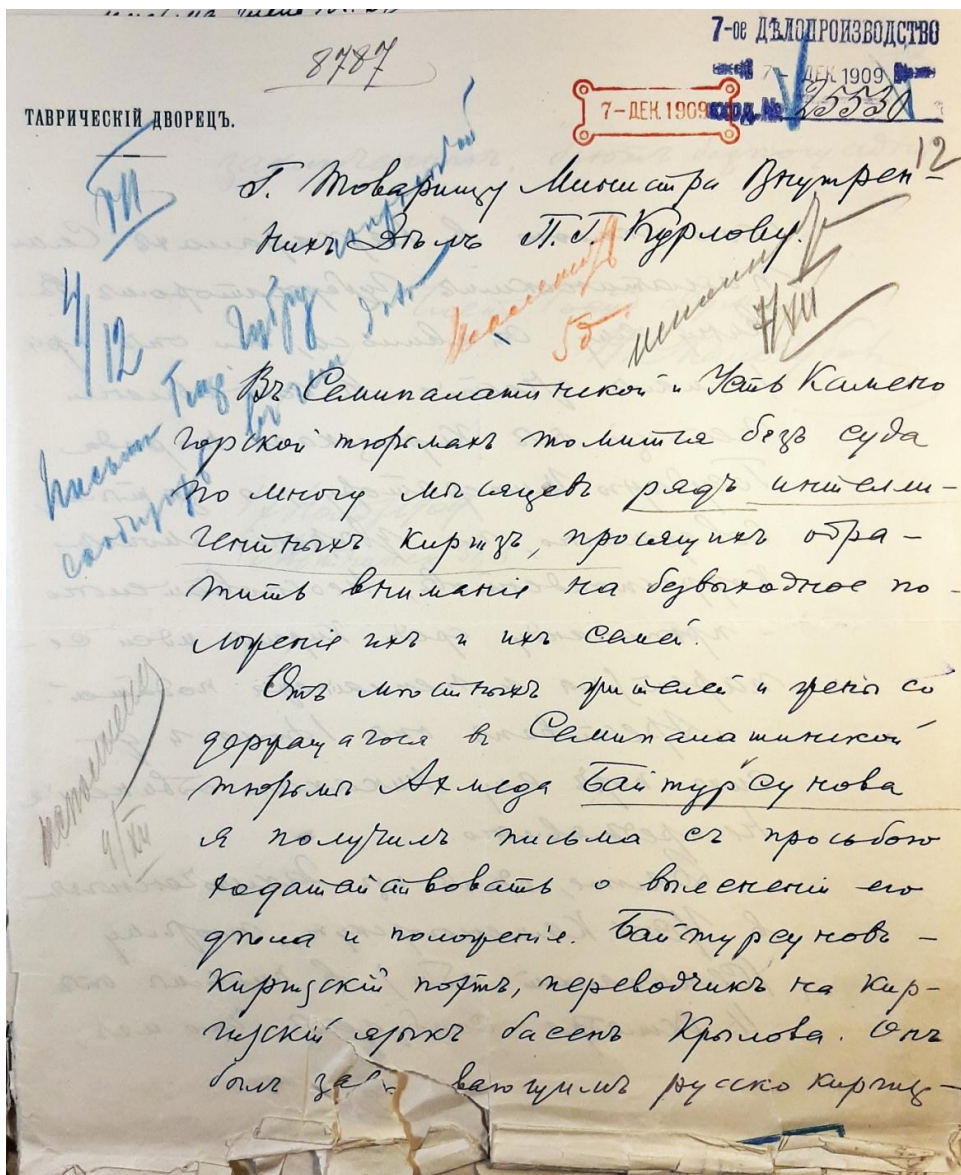 8787
7-ое ДѢЛОПРОИЗВОДСТВО
7 - ДЕК 1909
7 - ДЕК 1909
ВХОД. № 25530
ТАВРИЧЕСКІЙ ДВОРЕЦЪ.
12
VII
Г. Товарищу Министра Внутрен-
нихъ Дѣлъ П. Г. Курлову.
7/XII
4/12
Въ Семипалатинской и Усть Камено
горской тюрьмахъ томится безъ суда
по многу мѣсяцевъ рядъ интелли-
гентныхъ киргизъ, просящихъ обра-
тить вниманіе на безвыходное по-
ложеніе ихъ и ихъ семей.
Отъ мѣстныхъ жителей и жены со
держащагося въ Семипалатинской
тюрьмѣ Ахмеда Байтурсунова
я получилъ письма съ просьбою
ходатайствовать о выясненіи его
дѣла и положенія. Байтурсуновъ -
Киргизскій поэтъ, переводчикъ на кир-
гизскій языкъ басенъ Крылова. Онъ
былъ русско киргиз-